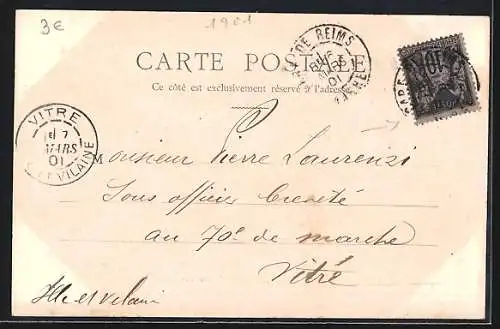 3€
1901
GARE DE REIMS
MARS
01
MARNE
CARTE POSTALE
Ce côté est exclusivement réservé à l'adresse
10
GARE
VITRE
7
MARS
01
ILLE ET VILAINE
M
Monsieur Pierre Laurenzi
Sous officier
au 70e de marche
Vitré
Ille et vilaine